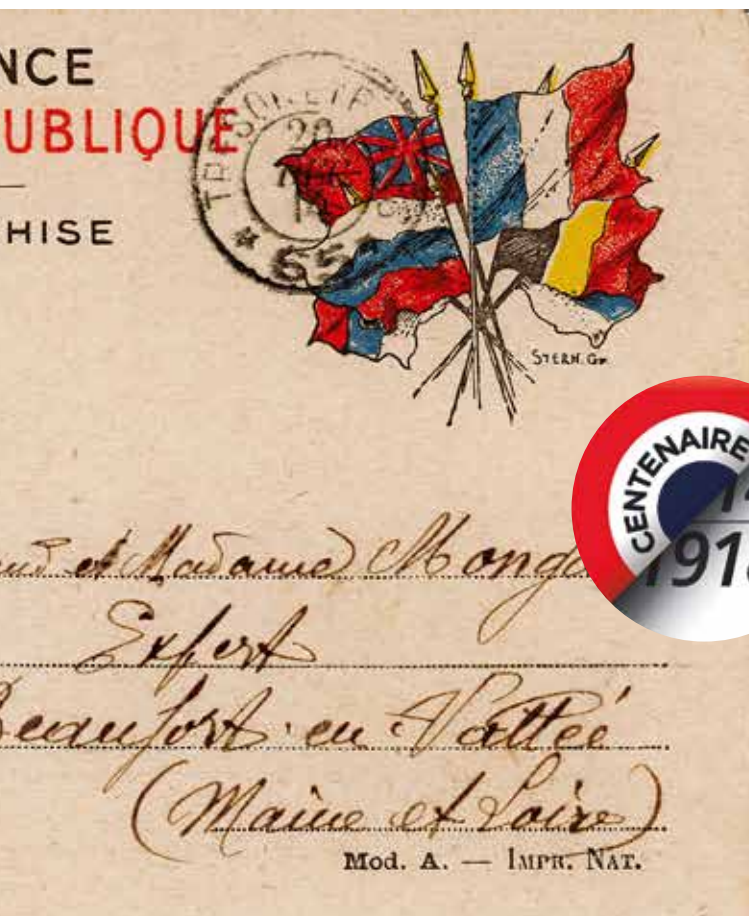 NCE
UBLIQUE
HISE
TRESOR ET P
20
65
STERN. Gr.
CENTENAIRE
14
1918
et Madame
Expert
Beaufort en Vallée
(Maine et Loire)
Mod. A. — IMPR. NAT.